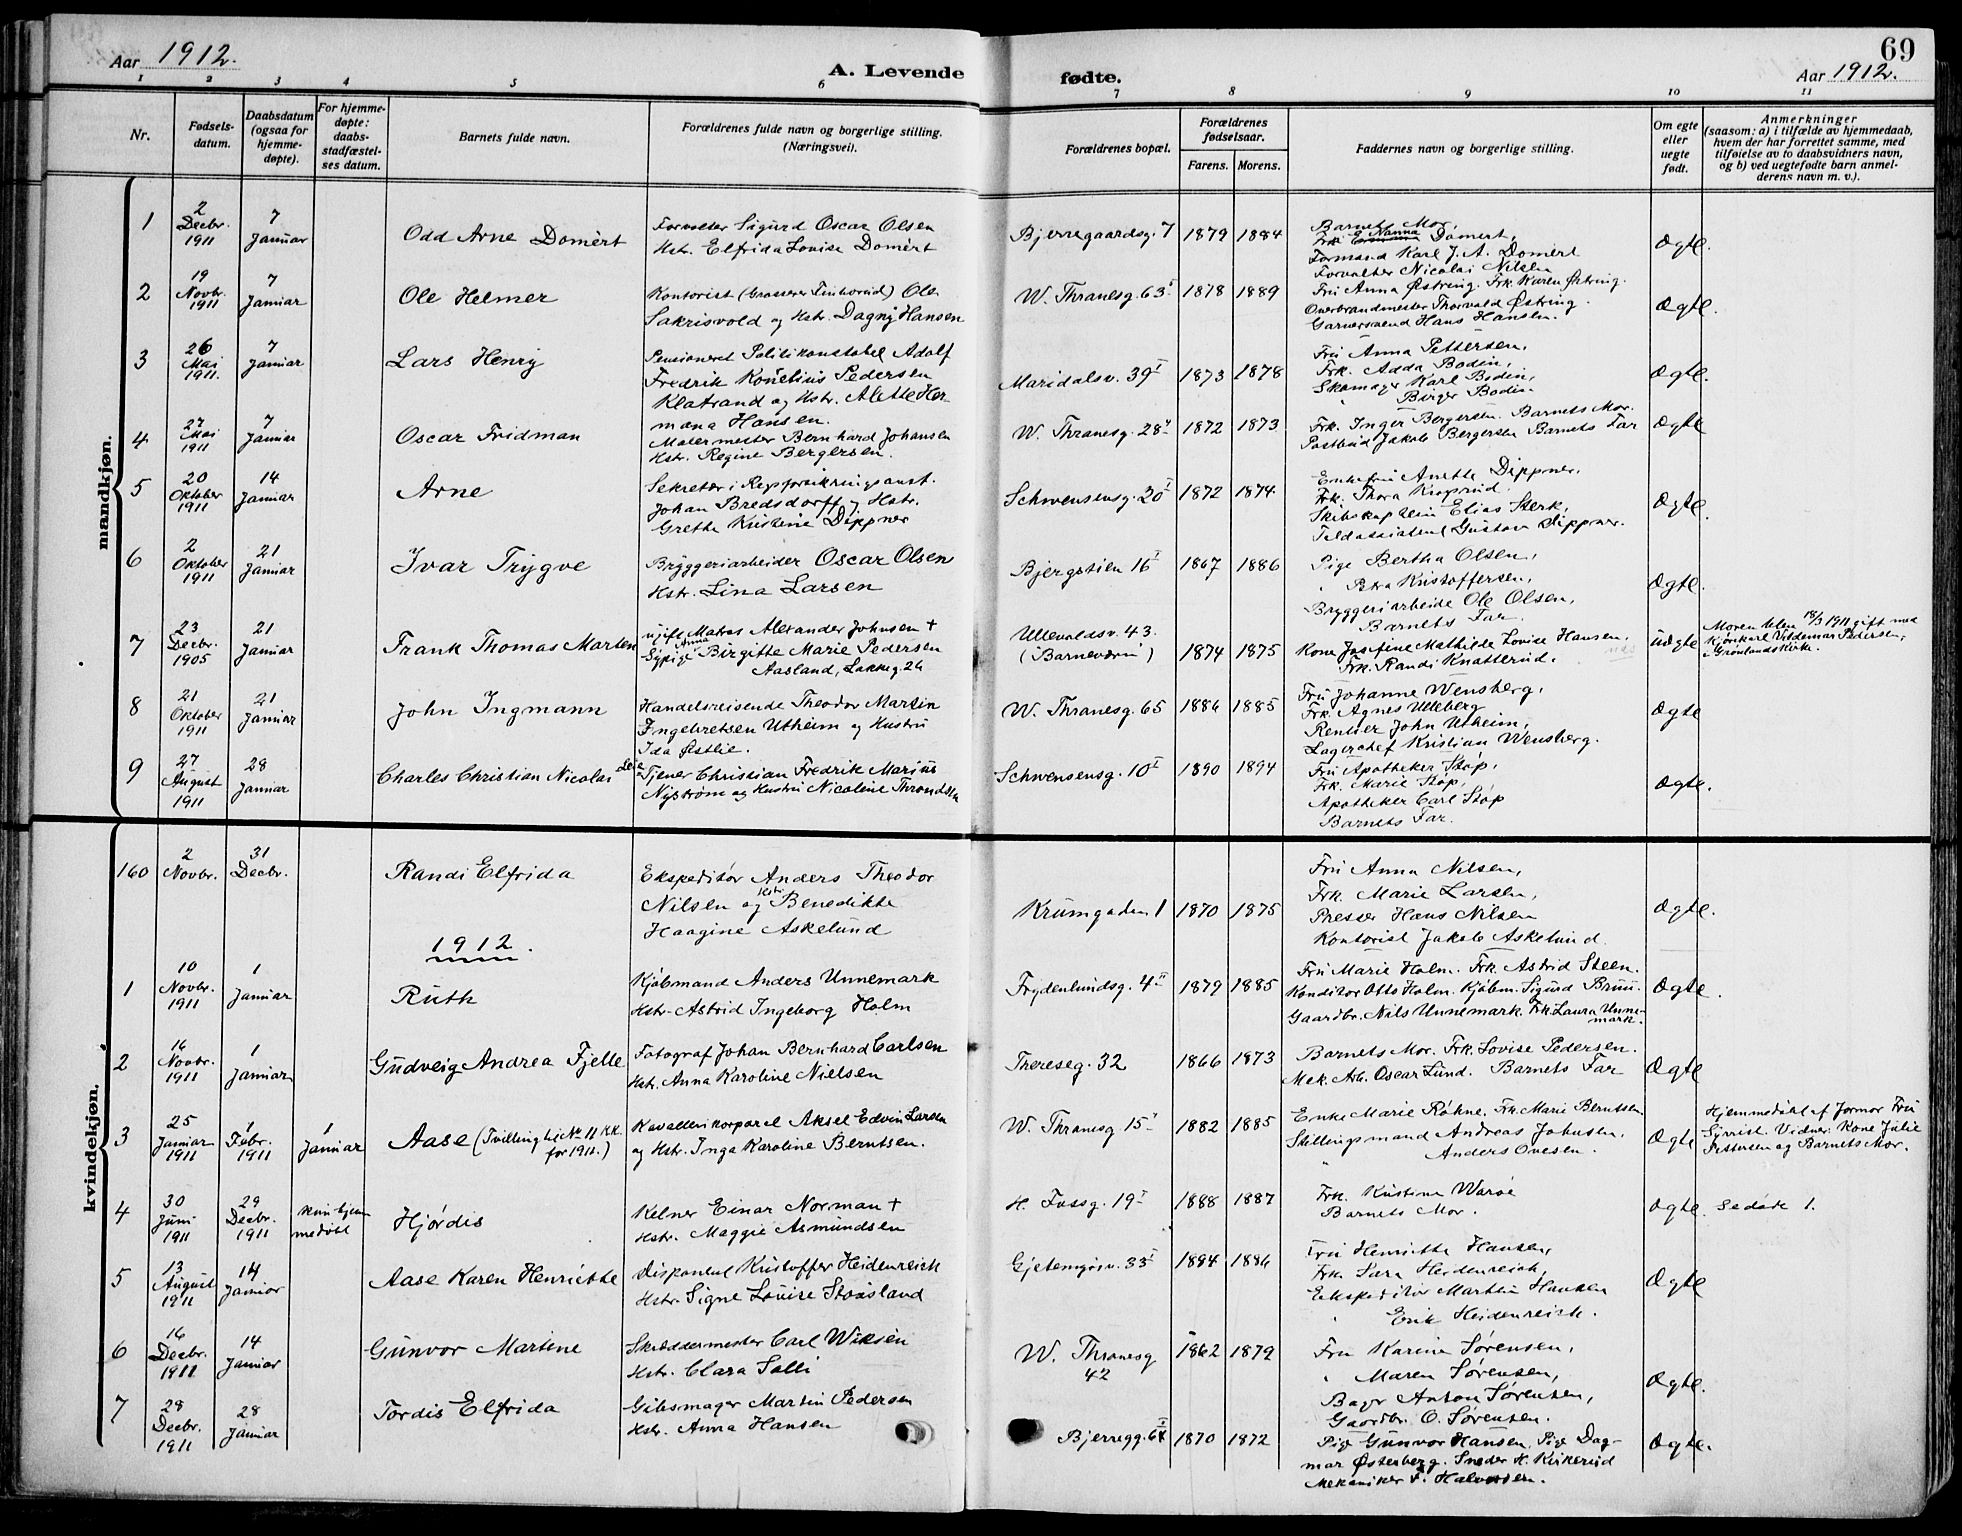 Aar 1912. A. Levende fødte. Aar 1912. 69
1 2 3 4 5 6 7 8 9 10 11
Nr.
Fødselsdatum.
Daabsdatum (ogsaa for hjemmedøpte).
For hjemmedøpte: daabsstadfæstelses datum.
Barnets fulde navn.
Forældrenes fulde navn og borgerlige stilling. (Næringsvei).
Forældrenes bopæl.
Forældrenes fødselsaar.
Farens. Morens.
Faddernes navn og borgerlige stilling.
Om egte eller uegte født.
Anmerkninger
(saasom: a) i tilfælde av hjemmedaab,
hvem der har forrettet samme, med
tilføielse av to daabsvidners navn,
og b) ved uegtefødte barn anmelderens navn m. v.).
mandkjøn.
1 2 Decbr. 1911 7 Januar Odd Arne Domèrt
Forvalter Sigurd Oscar Olsen
Hstr. Elfrida Lovise Domèrt
Bjerregaardsg. 7 1879 1884
Barnets Mor,
Frk. Nanna Domèrt,
Formand Karl J. A. Domèrt
Forvalter Nicolai Nilsen
Ægte.
2 19 Novbr. 1911 7 Januar Ole Helmer
Kontorist (Grosserer) Ole
Sakrisvold og Hstr. Dagny Hansen
W. Thranesg. 63 I 1878 1889
Fru Anna Østring. Frk. Karen Østring.
Overbrandmester Thorvald Østring.
Garversvend Hans Hansen.
Ægte.
3 26 Mai 1911. 7 Januar Lars Henry
Pensioneret Politikonstabel Adolf
Fredrik Kornelius Pedersen
Klatrand og Hstr. Alette Her-
mana Hansen.
Maridalsv. 39 I 1873 1878
Fru Anna Pettersen,
Frk. Adda Bodin,
Skomager Karl Bodin,
" Birger Bodin
Ægte.
4 27 Mai 1911 7 Januar Oscar Fridman
Malermester Bernhard Johansen
Hstr. Regine Bergersen.
W. Thranesg. 28 II 1872 1873
Frk. Inger Bergersen. Barnets Mor.
Postbud Jakob Bergersen Barnets Far
Ægte
5 20 Oktober 1911 14 Januar Arne
Sekretær i Rigsforsikringsanst.
Johan Bredsdorff og Hstr.
Grethe Kristine Dippner
Schwensensg. 20 I 1872 1874
Enkefru Anette Dippner,
Frk. Thora
Skibskaptein Elias Sterk,
Toldassistent Gustav Dippner.
Ægte.
6 2 Oktober 1911 21 Januar Ivar Trygve
Bryggeriarbeider Oscar Olsen
Hstr. Lina Larsen
Bjergstien 16 I 1867 1886
Pige Bertha Olsen,
" Petra Kristoffersen,
Bryggeriarbeide Ole Olsen,
Barnets Far
Ægte.
7 23 Decbr. 1905 21 Januar Frank Thomas Marten
ugift Matros Alexander Johnsen +
Sypige Anna Birgitte Marie Pedersen
Aasland, Lakkeg. 26
Ullevoldsv. 43.
(Barneværn) 1874 1875
Kone Josefine Mathilde Lovise Hansen.
Frk. Randi Knatterud.
uægte
Moren blev 18/3 1911 gift med
Kjørekarl Valdemar Pedersen,
i Grønlands Kirke.
8 21 Oktober 1911 21 Januar John Ingmann
Handelsreisende Theodor Martin
Ingebretsen Utheim og Hustru
Ida Østlie.
W. Thranesg. 65 1886 1885
Fru Johanne Wensberg,
Frk. Agnes Ulleberg
Rentier John Utheim,
Lagerchef Kristian Wensberg.
Ægte
9 27 August 1911 28 Januar Charles Christian Nicolai
Tjener Christian Fredrik Marius
Nystrøm og Hustru Nicoline Throndsen
Schwensensg. 10 I 1890 1894
Fru Apotheker Støp,
Frk. Marie Støp,
Apotheker Carl Støp
Barnets Far.
Ægte.
kvindekjøn.
160 2 Novbr. 31 Decbr. Randi Elfrida
Ekspeditør Anders Theodor
Nilsen og Hstr. Benedikte
Haagine Askelund
Krumgaden 1 1870 1875
Fru Anna Nilsen,
Frk. Marie Larsen,
Presser Hans Nilsen
Kontorist Jakob Askelund.
Ægte.
1912.
1 10 Novbr. 1911 1 Januar Ruth
Kjøbmand Anders Unnemark
Hstr. Astrid Ingeborg Holm
Frydenlundsg. 4 II 1879 1885
Fru Marie Holm. Frk. Astrid Steen.
Konditor Otto Holm. Kjøbm. Sigurd Bruu.
Gaardbr. Nils Unnemark. Frk. Laura Unne-
mark.
Ægte.
2 16 Novbr. 1911 1 Januar Gudveig Andrea Fjelle
Fotograf Johan Bernhard Carlsen
Hstr. Anna Karoline Nielsen
Thereseg. 32 1866 1873
Barnets Mor. Frk. Lovise Pedersen.
Mek. Arb. Oscar Lund. Barnets Far
Ægte
3 25 Januar 1911 1 Febr. 1911 1 Januar Aase (Tvilling til No 11 K.K. for 1911.)
Kavallerikorporal Aksel Edvin Larsen
og Hstr. Inga Karoline Berntsen.
W. Thranesg 15 I 1882 1885
Enke Marie Røhne. Frk. Marie Berntsen
Stillingsmand Andreas Johnsen,
" Anders Ovesen.
Ægte
Hjemmedøbt af Jormor Fru
Syrrist. Vidner: Kone Julie
Pettersen og Barnets Mor.
4 30 Juni 1911 29 Decbr. 1911 kun hjem medøbt Hjørdis
Kelner Einar Norman +
Hstr. Maggie Asmundsen
H. Fossg. 19 I 1888 1887
Frk. Kristine Warøe
Barnets Mor.
Ægte. Se døde 1.
5 13 August 1911 14 Januar Aase Karen Henriette
Disponent Kristoffer Heidenreich
Hstr. Signe Louise Stousland
Gjetemyrsv. 33 I 1894 1886
Fru Henriette Hansen,
Frk. Sara Heidenreich,
Ekspeditør Martin Hansen
" Erik Heidenreich.
Ægte
6 16 Decbr. 1911 14 Januar Gunvor Martine
Skræddermester Carl Wiksén
Hstr. Clara Solli
W. Thranesg 42 1862 1879
Fru Karine Sørensen,
" Maren Sørensen,
Bager Anton Sørensen,
Gaardbr. O. Sørensen.
Ægte.
7 28 Decbr. 1911 28 Januar Tordis Elfrida
Gibsmager Martin Pedersen
Hstr. Anna Hansen
Bjerregg. 64 I 1870 1872
Pige Gunvor Hansen, Pige Dag-
mar Østerberg. Sneder H. Kirkerud
Mekaniker F. Halvorsen.
Ægte.